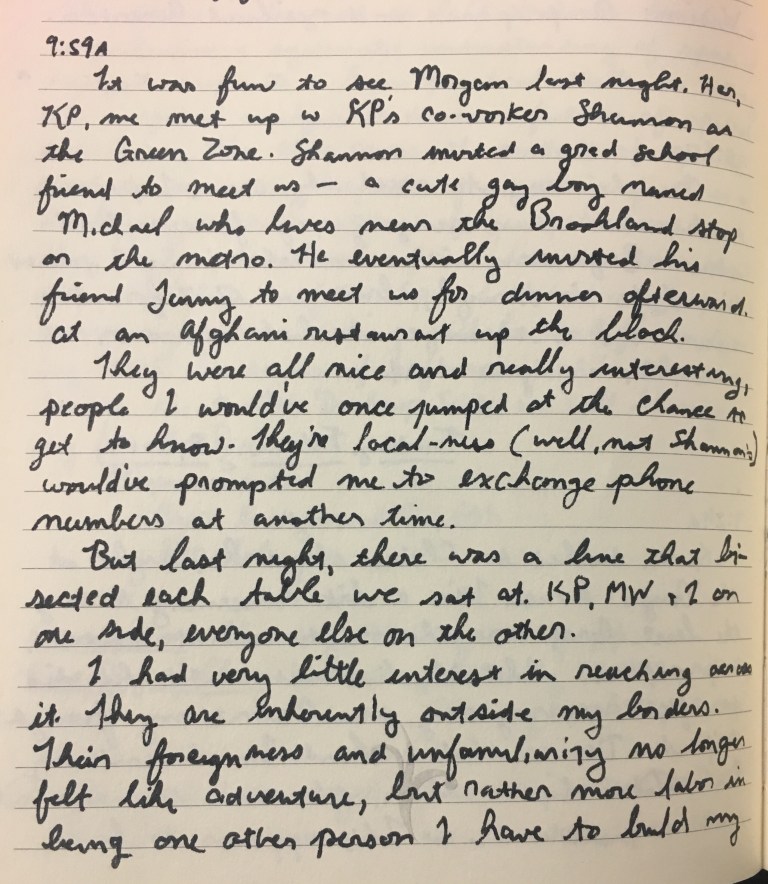 9:59A
It was fun to see Morgan last night. Her,
KP, me met up w KP's co-worker Shannon at
the Green Zone. Shannon invited a grad school
friend to meet us — a cute gay boy named
Michael who lives near the Brookland stop
on the metro. He eventually invited his
friend Jenny to meet us for dinner afterward.
at an Afghani restaurant up the block.
They were all nice and really interesting,
people I would've once jumped at the chance to
get to know. They're local-ness (well, not Shannon's)
would've prompted me to exchange phone
numbers at another time.
But last night, there was a line that bi-
sected each table we sat at. KP, MW + I on
one side, everyone else on the other.
I had very little interest in reaching across
it. They are inherently outside my borders.
Their foreignness and unfamiliarity no longer
felt like adventure, but rather more labor in
being one other person I have to build my